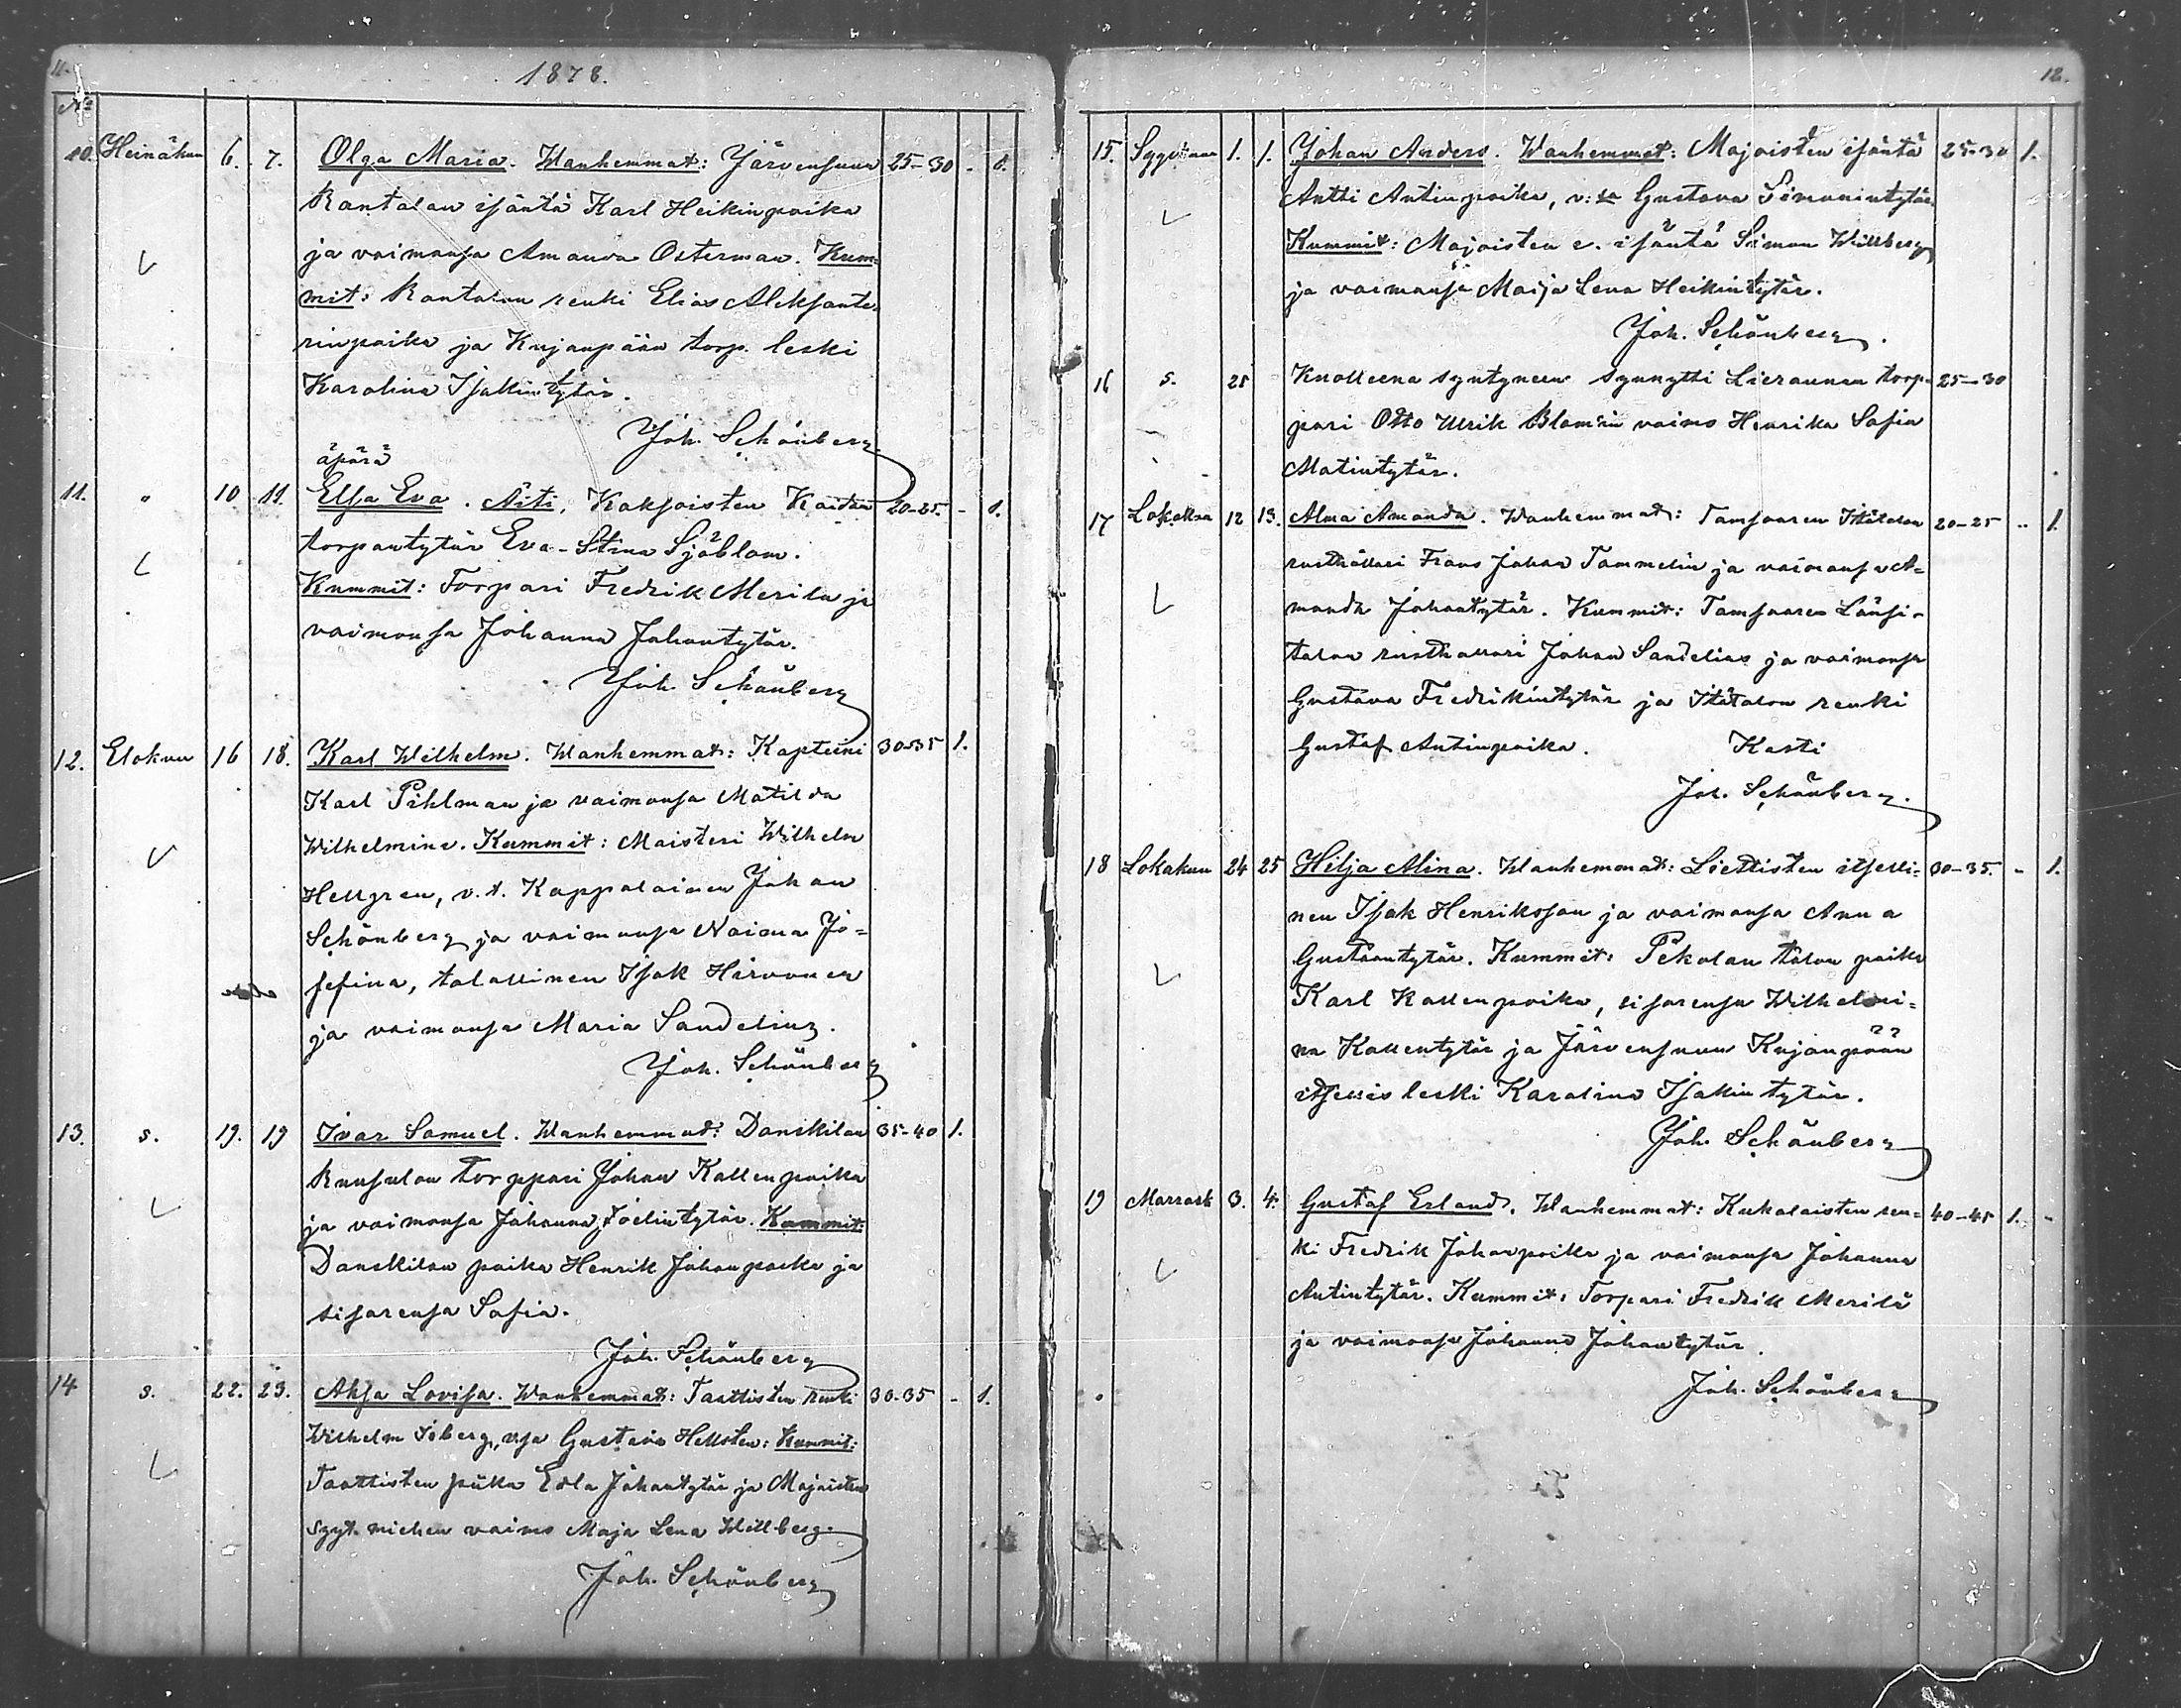 11.
1878.
No
10. Heinäkuu 6. 7. Olga Maria. Wanhemmat: Järvensuun 25-30 - 1.
Rantalan isäntä Karl Heikinpoika
ja vaimonsa Amanda Österman. Kum-
mit: Rantalan renki Elias Aleksante-
rinpoika ja Kujanpään torp. leski
Karolina Isakintytär.
Joh. Schönberg
äpärä
11. " 10. 11. Elsa Eva. Äiti, Kaksoisten 20-25. - 1.
torpantytär Eva-Stina Sjöblom.
Kummit: Torpari Fredrik Merila ja
vaimonsa Johanna Johantytär.
Joh. Schönberg
12. Elokuu 16 18. Karl Wilhelm. Wanhemmat: Kapteeni 30-35 1.
Karl Pihlman ja vaimonsa Matilda
Wilhelmina. Kummit: Maisteri Wilhelm
Hellgren, v.t. Kappalainen Johan
Schönberg ja vaimonsa Naima Jo=
sefina, talollinen Isak Hirvonen
ja vaimonsa Maria Sandelius.
Joh. Schönberg
13. s. 19. 19 Ivar Samuel. Wanhemmat: Danskilan 35-40 1.
Ruusulan torppari Johan Kallenpoika
ja vaimonsa Johanna Joelintytär. Kummit:
Danskilan poika Henrik Johanpoika ja
sisarensa Sofia.
Joh. Schönberg
14 s. 22. 23. Aksa Lovisa. Wanhemmat: Taattisten renki 30-35 - 1.
Wilhelm Isberg, vsa Gustava Hellsten: Kummit:
Taattisten piika Edla Johantytär ja Majaisten
syyt. miehen vaimo Maja Lena Willberg.
Joh. Schönberg
12.
15. Syyskuu 1. 1. Johan Anders. Wanhemmat: Majoisten isäntä 25-30 1.
Antti Antinpoika, v:sa Gustava Simonintytär
Kummit: Majoisten e. isäntä Simon Willberg
ja vaimonsa Maija Lena Heikintytär.
Joh. Schönberg.
16 s. 25 Kuolleena syntyneen synnytti Lieraunan torp- 25-30
pari Otto Ulrik Blomin vaimo Henrika Sofia
Matintytär.
17 Lokakuu 12 13. Alma Amanda. Wanhemmat: Tamsaaren Itätalon 20-25 .. 1.
rusthollari Frans Johan Tammelin ja vaimonsa A=
manda Johantytär. Kummit: Tamsaaren Länsi-
talon rusthollari Johan Sandelius ja vaimonsa
Gustava Fredrikintytär ja Itätalon renki
Gustaf Antinpoika. Kasti
Joh. Schönberg.
18 Lokakuu 24 25 Hilja Alina. Wanhemmat: Liettisten itselli= 30-35. - 1.
nen Isak Henriksson ja vaimonsa Anna
Gustaantytär. Kummit: Pekolan talon poika
Karl Kallenpoika, sisarensa Wilhelmi=
na Kallentytär ja Järvensuun Kujanpään
itsellis leski Karolina Isakintytär.
Joh. Schönberg
19 Marrask 3. 4. Gustaf Erland. Wanhemmat: Kukolaisten ren= 40-45 1. -
ki Fredrik Johanpoika ja vaimonsa Johanna
Antintytär. Kummit: Torpari Fredrik Merilä
ja vaimonsa Johanna Johantytär.
Joh. Schönberg